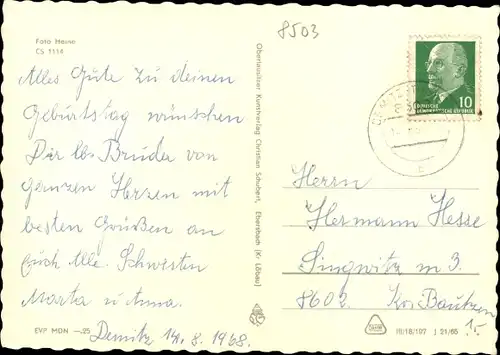 8503
Foto Hesse
CS 1114
Alles Gute zu deinen
Geburtstag wünschen
Dir lb. Bruder von
ganzen Herzen mit
besten Grüßen an
Euch Alle. Schwestern
Marta u. Anna.
EVP MDN —.25
Demitz 14. 8. 1968.
Oberlausitzer Kunstverlag Christian Schubert, Ebersbach (Kr. Löbau)
10
DEUTSCHE
DEMOKRATISCHE REPUBLIK
Herrn
Hermann Hesse
Singwitz n. 3.
8602. Krs. Bautzen
III/18/197 J 21/65
1,-